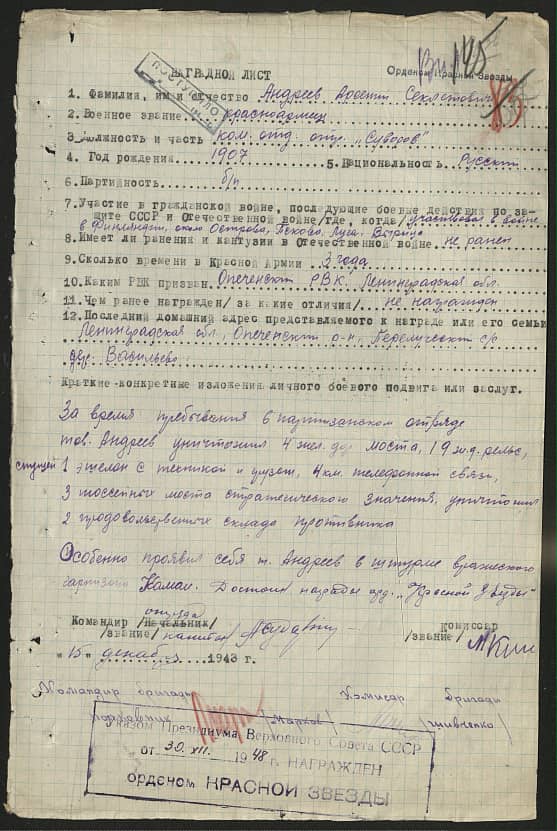 НАГРАДНОЙ ЛИСТ
Орденом Красной Звезды
1. Фамилия, имя и отчество Андреев Арсентий
2. Военное звание красноармеец
3. Должность и часть ком. отд. отр. „Суворов"
4. Год рождения 1907 5. Национальность Русский
6. Партийность б/п
7. Участие в гражданской войне, последующие боевые действия по за-
щите СССР и Отечественной войне/где, когда/ участвовал в войне
в Финляндии, около Острова, Пскова, Луга.
8. Имеет ли ранения и кантузии в Отечественной войне не ранен
9. Сколько времени в Красной Армии 3 года
10. Каким РВК призван Опеченский РВК, Ленинградской обл.
11. Чем ранее награжден/за какие отличия/ не награжден
12. Последний домашний адрес представляемого к награде или его семьи
Ленинградская обл, Опеченский р-н, с/с
дер. Васильево
Краткие конкретные изложения личного боевого подвига или заслуг.
За время пребывания в партизанском отряде
тов. Андреев уничтожил 4 жел. дор. моста, 19 ж.д. рельс,
1 эшелон с техникой и грузом, 4 км. телефонной связи,
3 шоссейных моста стратегического значения, уничтожил
2 продовольственных склада противника
Особенно проявил себя т. Андреев в штурме вражеского
гарнизона Достоин награды орд. „Красной Звезды"
отряда
Командир /Начальник/
/звание/ капитан
Комиссар
/звание/
"15" декабря 1943 г.
Командир бригады
Комисар бригады
/Марков/
ПОСТУПИЛО
Указом Президиума Верховного Совета СССР
от 30.XII. 1948 г. НАГРАЖДЕН
орденом КРАСНОЙ ЗВЕЗДЫ